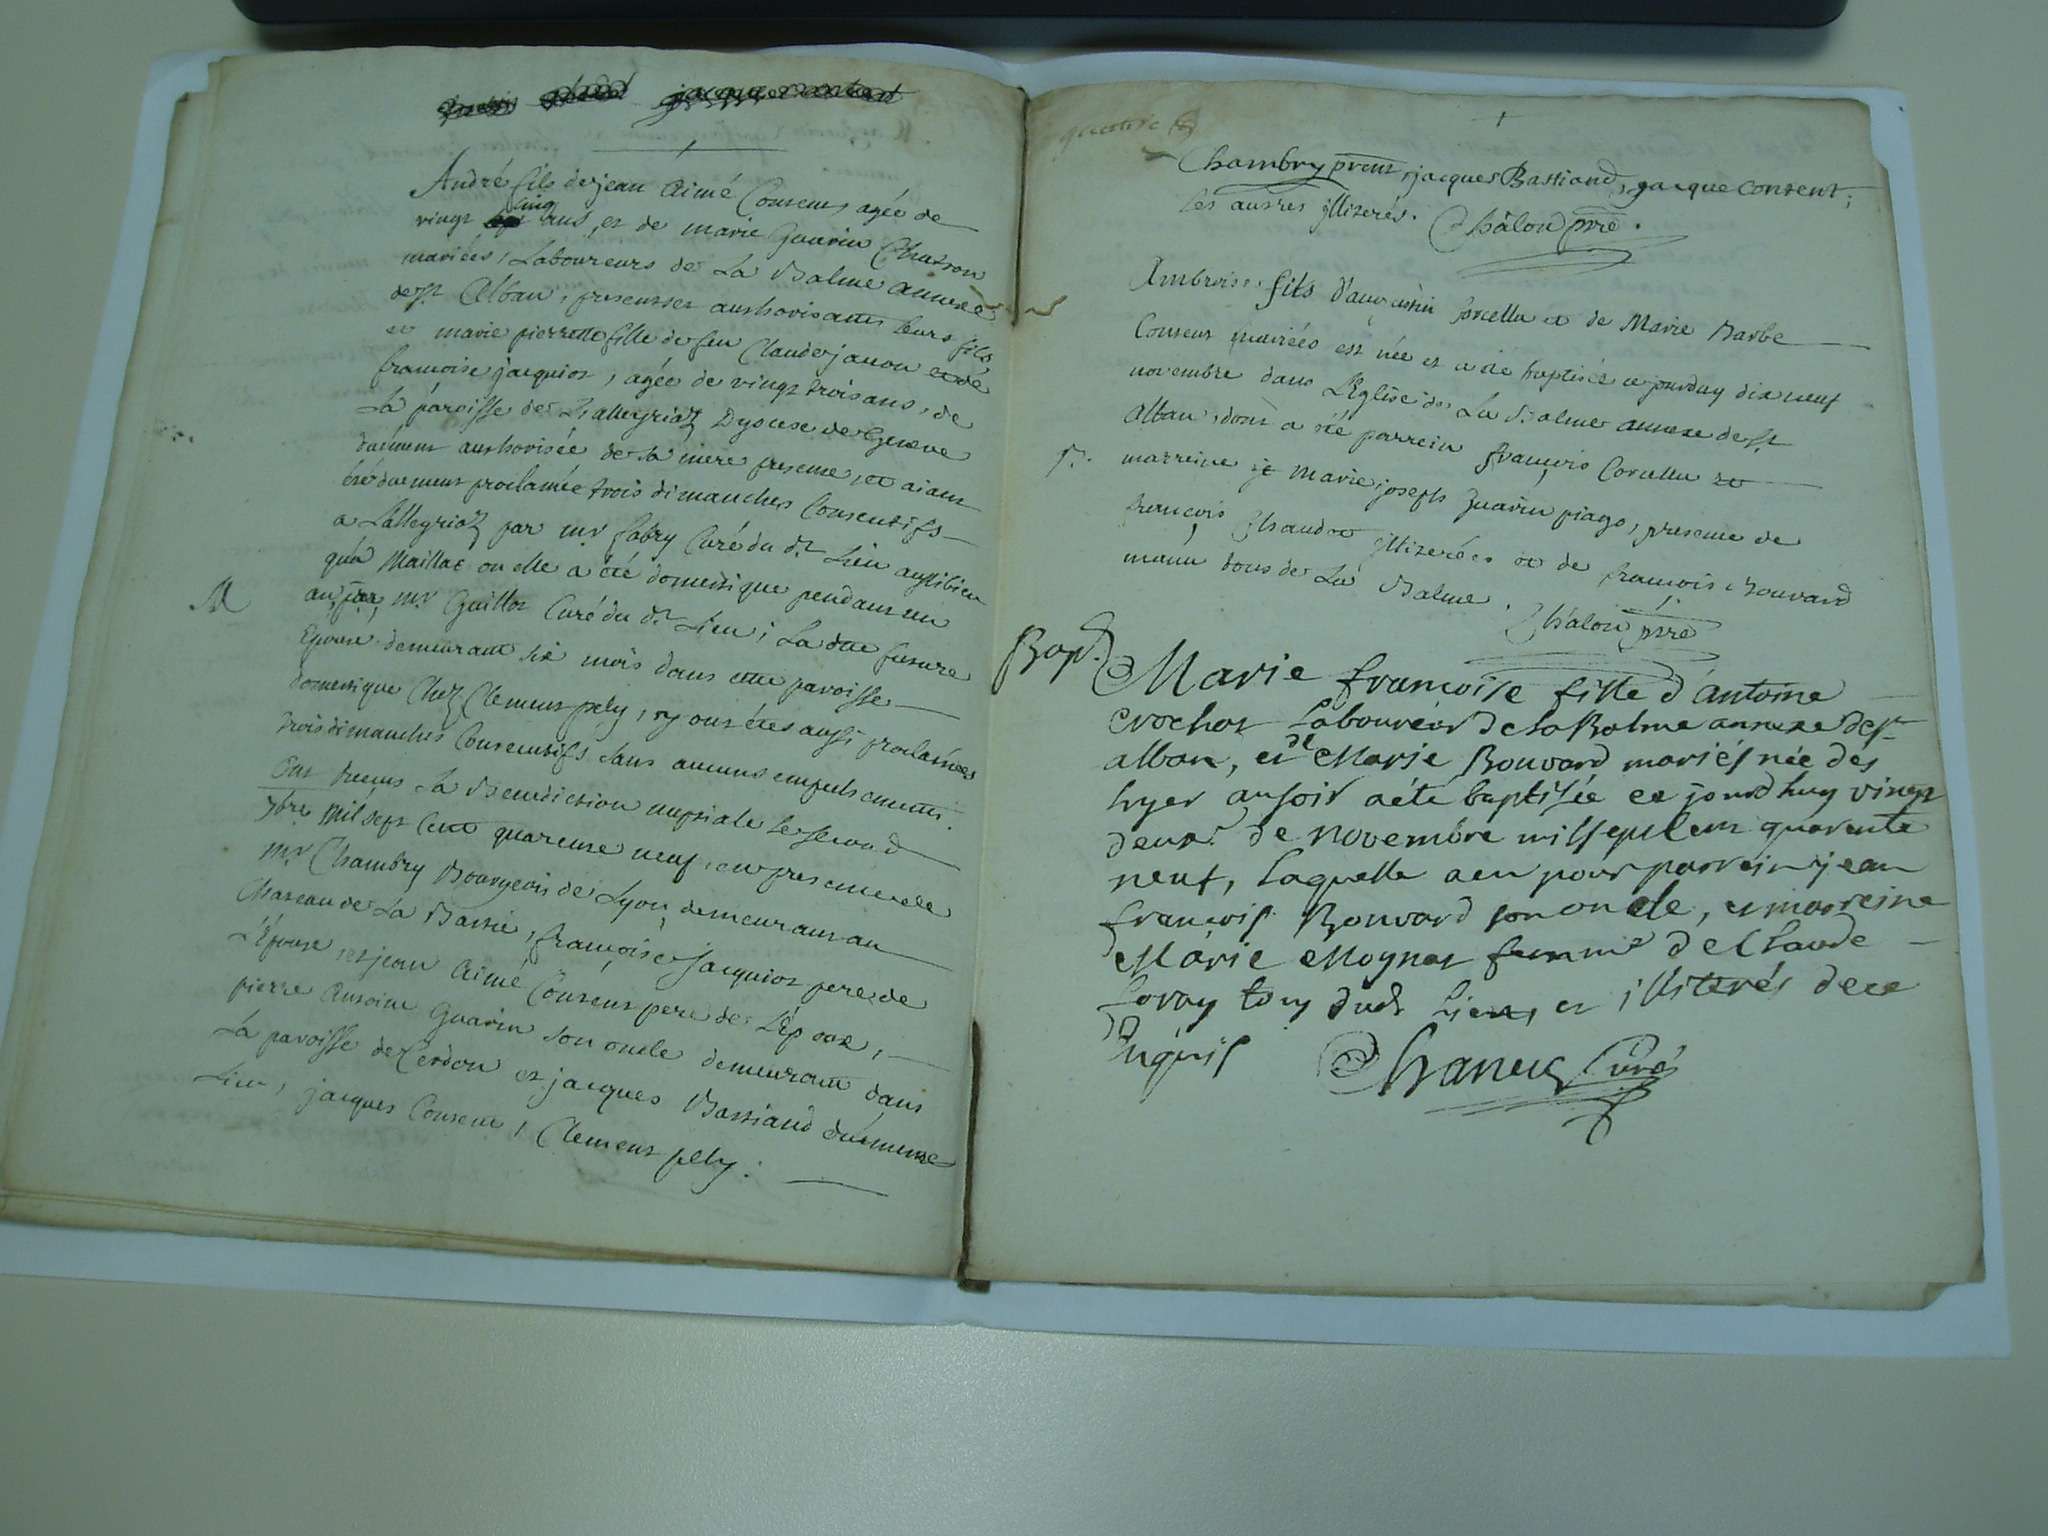 André fils de jean Aimé Consens agée de
vingt cinq ans, et de marie Guarin Chatron
mariées, Laboureurs de La Balme annexe
de st Alban, presentset authorisants leurs fils
et marie pierrette fille de feu Claude janon et de
francoise jacquiot, agée de vingt trois ans, de
La paroisse de Lalleyriat Dyocese de Geneve
duëment authorisée de sa mere presente, et aiant
été duement proclamée trois dimanches Consecutifs
a Lalleyriat par mr fabry Curé du dt Lieu aussi bien
qu'a Maillac ou elle a été domestique pendant un
an, par mr Guillot Curé du dt Lieu; La dtte future
Epouse demeurant six mois dans cette paroisse
domestique Chez Clement pely, ont étés aussi proclamées
trois dimanches Consecutifs sans aucuns empechements
Ont recus La Benediction nuptiale Le second
9bre mil sept Cent quarente neuf, en presence de
mr Chambry Bourgeois de Lyon demeurant au
Chateau de La Batie, françoise jacquiot pere de
L'Epouse, et jean Aimé Consens pere de L'époux,
pierre Antoine Guarin son oncle demeurant dans
La paroisse de Cerdon et jacques Bastiand du meme
Lieu, jacques Consent, Clement pely.
M
Chambry prent, jacques Bastiand, jacque Consent,
les autres illiterés. Châlon ptre.
Ambroise fils d'augustin Corcellu et de Marie Barbe
Consens mariées est née et a été baptisée ce jourduy dix neuf
novembre dans L'Eglise de La Balme annexe de st
Alban, dont a été parrein françois Corcellu et
marreine marie joseph Guarin piago, presence de
francois Chaudet illiterées et de francois Bouvard
manu tous de La Balme. Châlon ptre
Bap. Marie francoise fille d'antoine
Crochat Laboureur de la Balme annexe de st
alban, et de Marie Bouvard mariés née des
hyer au soir a été baptisée ce jourdhuy vingt
deux de novembre mil sept cent quarente
neuf, laquelle a eu pour parrein jean
françois Bouvard son oncle, et marreine
Marie Moynat femme de Claude
Loray tous dudt lieu, et illiterés de ce
Enquis Chaneu Curé